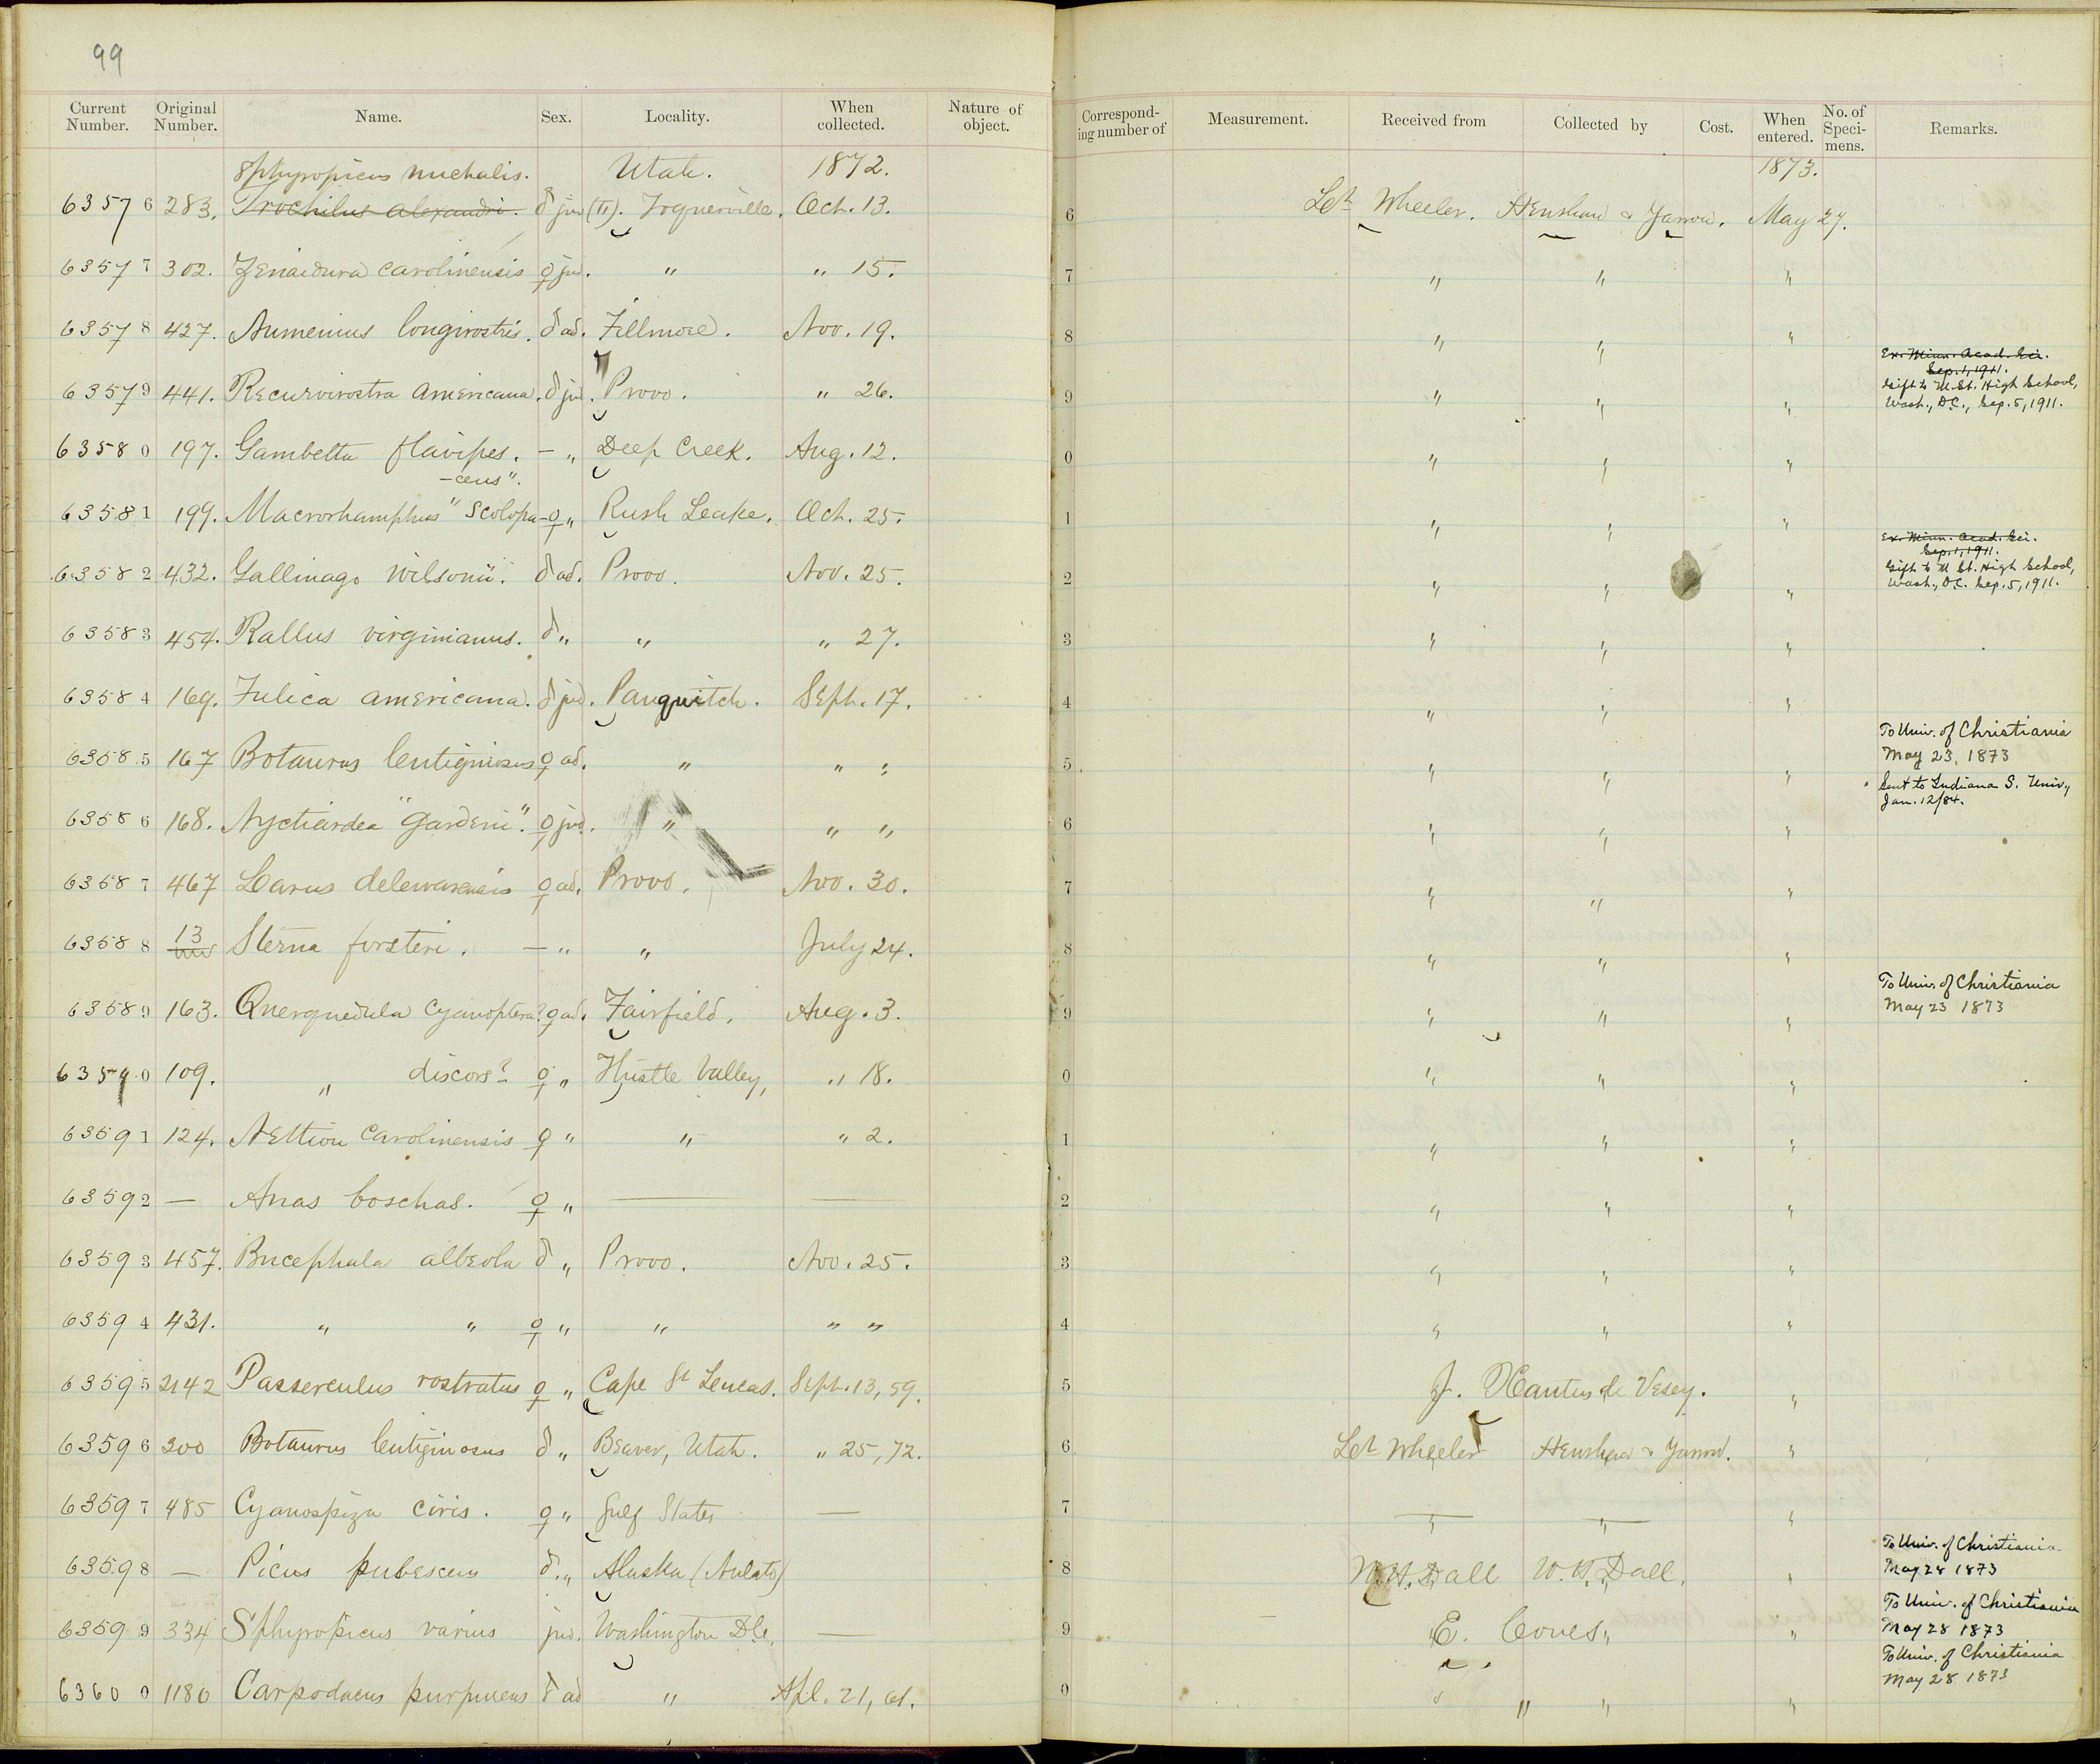 99
Current Number. Original Number. Name. Sex. Locality. When collected. Nature of object. Corresponding number of Measurement. Received from Collected by Cost. When entered. No. of Specimens. Remarks.
Sphyropicus nuchalis. Utah. 1872. 1873.
63576 283. Trochilus alexandri. ♂ juv (Tr). Toquerville. Oct. 13. 6 Lt Wheeler. Henshaw & Yarrow. May 27.
63577 302. Zenaidura carolinensis ♀ juv. " " 15. 7 " " "
63578 427. Numenius longirostris. ♂ ad. Fillmore. Nov. 19. 8 " " "
Ex. Minn. Acad. Sci.
Sep. 1, 1911.
Gift to M St. High School,
63579 441. Recurvirostra americana. ♂ juv. Provo. " 26. 9 " " " Wash., D.C., Sep. 5, 1911.
63580 197. Gambetta flavipes. — " Deep Creek. Aug. 12. 0 " " "
-ceus".
63581 199. Macrorhamphus "scolopa- ♀ " Rush Leake. Oct. 25. 1 " " "
Ex. Minn. Acad. Sci.
Sep. 1, 1911.
Gift to M St. High School,
63582 432. Gallinago wilsonii. ♂ ad. Provo. Nov. 25. 2 " " " Wash., D.C. Sep. 5, 1911.
63583 454. Rallus virginianus. ♂ " " " 27. 3 " " "
63584 169. Fulica americana. ♂ juv. Panguitch. Sept. 17. 4 " " "
To Univ. of Christiania
63585 167 Botaurus lentiginosus ♀ ad. " " " 5 " " " May 23, 1873
Sent to Indiana S. Univ.,
Jan. 12/84.
63586 168. Nyctiardea "gardeni". ♀ juv. " " " 6 " " "
63587 467 Larus delewarensis ♀ ad. Provo. Nov. 30. 7 " " "
63588 13 Sterna forsteri. — " " July 24. 8 " " "
To Univ. of Christiania
63589 163. Querquedula cyanoptera? ♀ ad. Fairfield. Aug. 3. 9 " " " May 23 1873
63590 109. " discors? ♀ " Thistle Valley, " 18. 0 " " "
63591 124. Nettion carolinensis ♀ " " " 2. 1 " " "
63592 — Anas boschas. ♀ " — — 2 " " "
63593 457. Bucephala albeola ♂ " Provo. Nov. 25. 3 " " "
63594 431. " " ♀ " " " " 4 " " "
63595 2142 Passerculus rostratus ♀ " Cape St Leucas. Sept. 13, 59. 5 J. Xantus de Vesey. "
63596 200 Botaurus lentiginosus ♂ " Beaver, Utah. " 25, 72. 6 Lt Wheeler Henshaw & Yarrow. "
63597 485 Cyanospiza ciris. ♀ " Gulf States — 7 " " "
To Univ. of Christiania
63598 — Picus pubescens ♂ " Alaska (Nulato) 8 W.H. Dall W.H. Dall. " May 28 1873
To Univ. of Christiania
63599 334 Sphyropicus varius juv. Washington D.C. — 9 E. Coues " May 28 1873
To Univ. of Christiania
63600 1180 Carpodacus purpureus ♂ ad " Apl. 21, 61. 0 " " " " May 28 1873